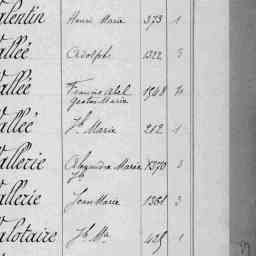 alentin Henri Marie 373 1
allée Adolphe 1322 5
allée Francis Abel 1548 10
Gaston Marie
allée Jh Marie 212 1
allerie Alexandre Marie 1370 3
Jh
allerie Jean Marie 1381 3
alotaire Jh Mie 425 1